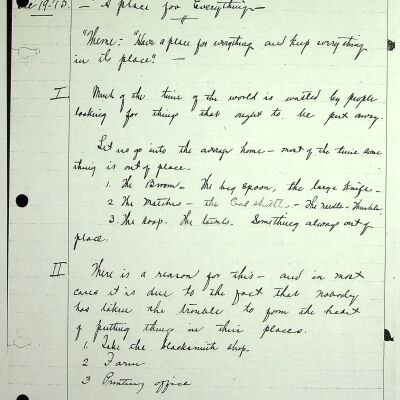 Dec 19-13. — A place for Everything —
"Theme:- "Have a place for everything and keep everything
in its place". —
I Much of the time of the world is wasted by people
looking for things that ought to be put away.
Let us go into the average home — most of the time some
thing is out of place.
1. The Broom — The big spoon, the large knife —
2 The Matches — the Coal shuttle — The needle — Thimble
3. The hoop. The towels. Something always out of
place.
II There is a reason for this — and in most
cases it is due to the fact that nobody
has taken the trouble to form the habit
of putting things in their places.
1. Take the blacksmith shop.
2 Farm
3 Printing office